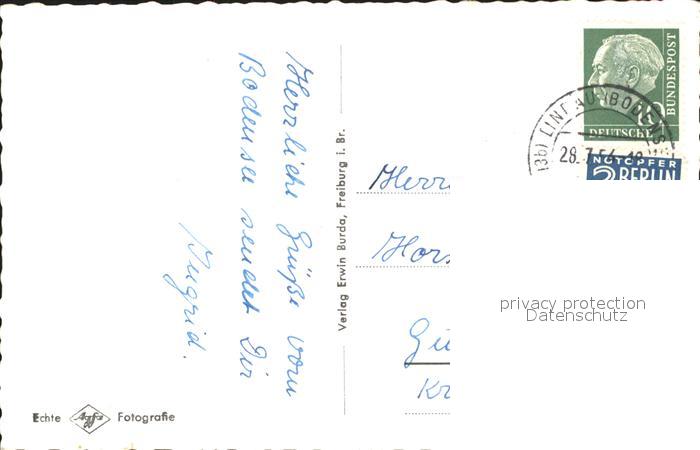 Herzliche Grüße vom
Bodensee sendet Dir
Ingrid.
Verlag Erwin Burda, Freiburg i. Br.
Echte Agfa Fotografie
Herrn
Hors
Gü
Kr
BUNDESPOST
DEUTSCHE
(13b) LINDAU (BODENSEE)
28.7.54
NOTOPFER
2 BERLIN
privacy protection
Datenschutz